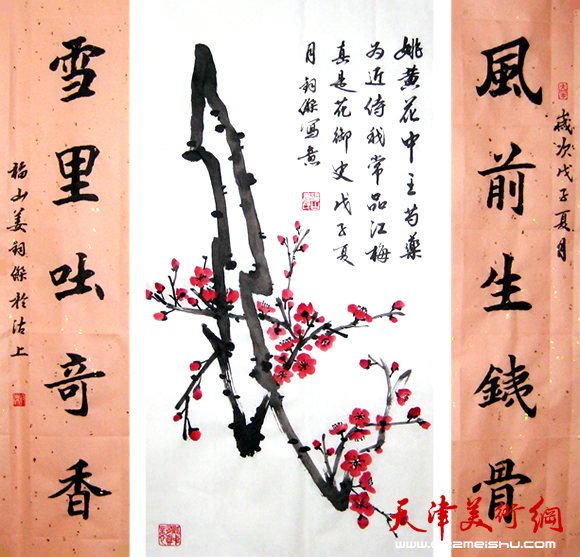 歲次戊子夏月
風前生銕骨
姚黄花中王芍藥
为近侍我常品江梅
真是花御史戊子夏
月鈞傑寫意
雪里吐奇香
福山姜鈞傑於沽上
天津美術網
www.022meishu.com